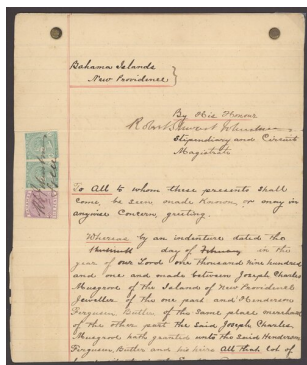 Bahama Islands
New Providence
By His Honour
Robert Johnstone
Stipendiary and Circuit
Magistrate
To All to whom these presents shall
come, be seen made known or may in
anywise Concern greeting.
Whereas by an indenture dated the
day of February in the
year of our Lord one thousand nine hundred
and one and made between Joseph Charles
Musgrove of the Island of New Providence
Jeweller of the one part and Henderson
Ferguson Butler of the Same place merchant
of the other part the Said Joseph Charles
Musgrove hath granted unto the Said Henderson
Ferguson Butler and his heirs All that lot of